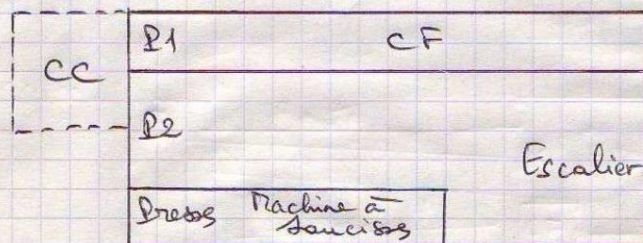 P1 CF
CC
P2
Escalier
Presses Machine à
saucisses